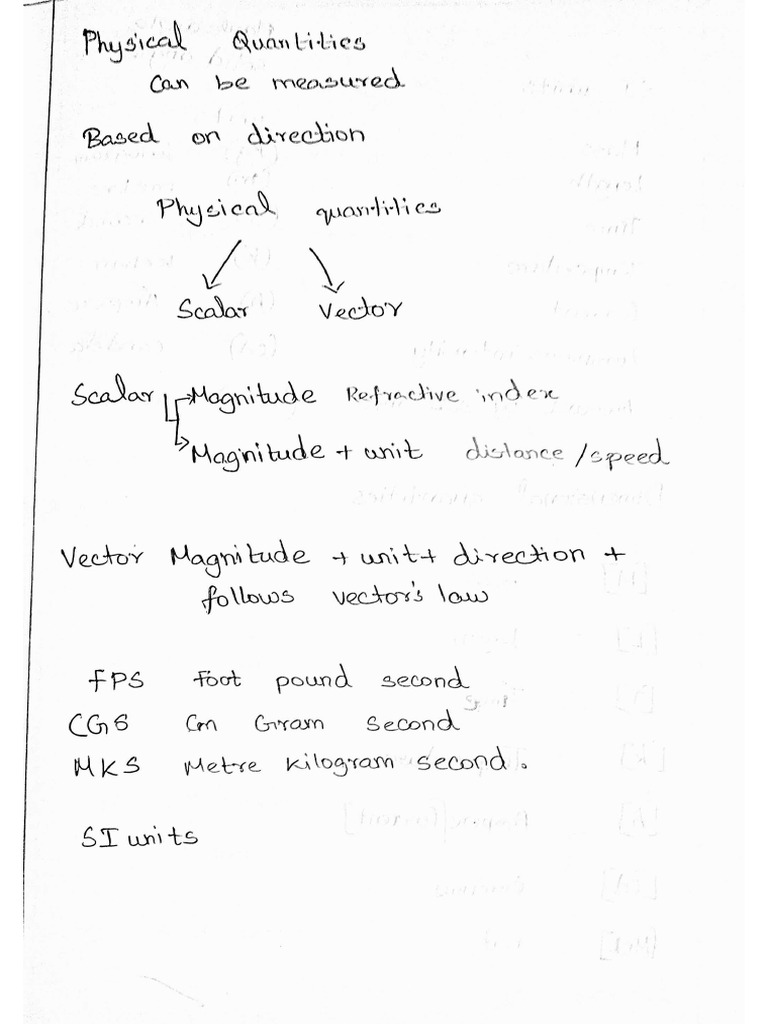 Physical Quantities
Can be measured
Based on direction
Physical quantities
Scalar Vector
Scalar Magnitude Refractive index
Magnitude + unit distance / speed
Vector Magnitude + unit + direction +
follows vector's law
FPS Foot pound second
CGS Cm Gram Second
MKS Metre kilogram second.
SI units